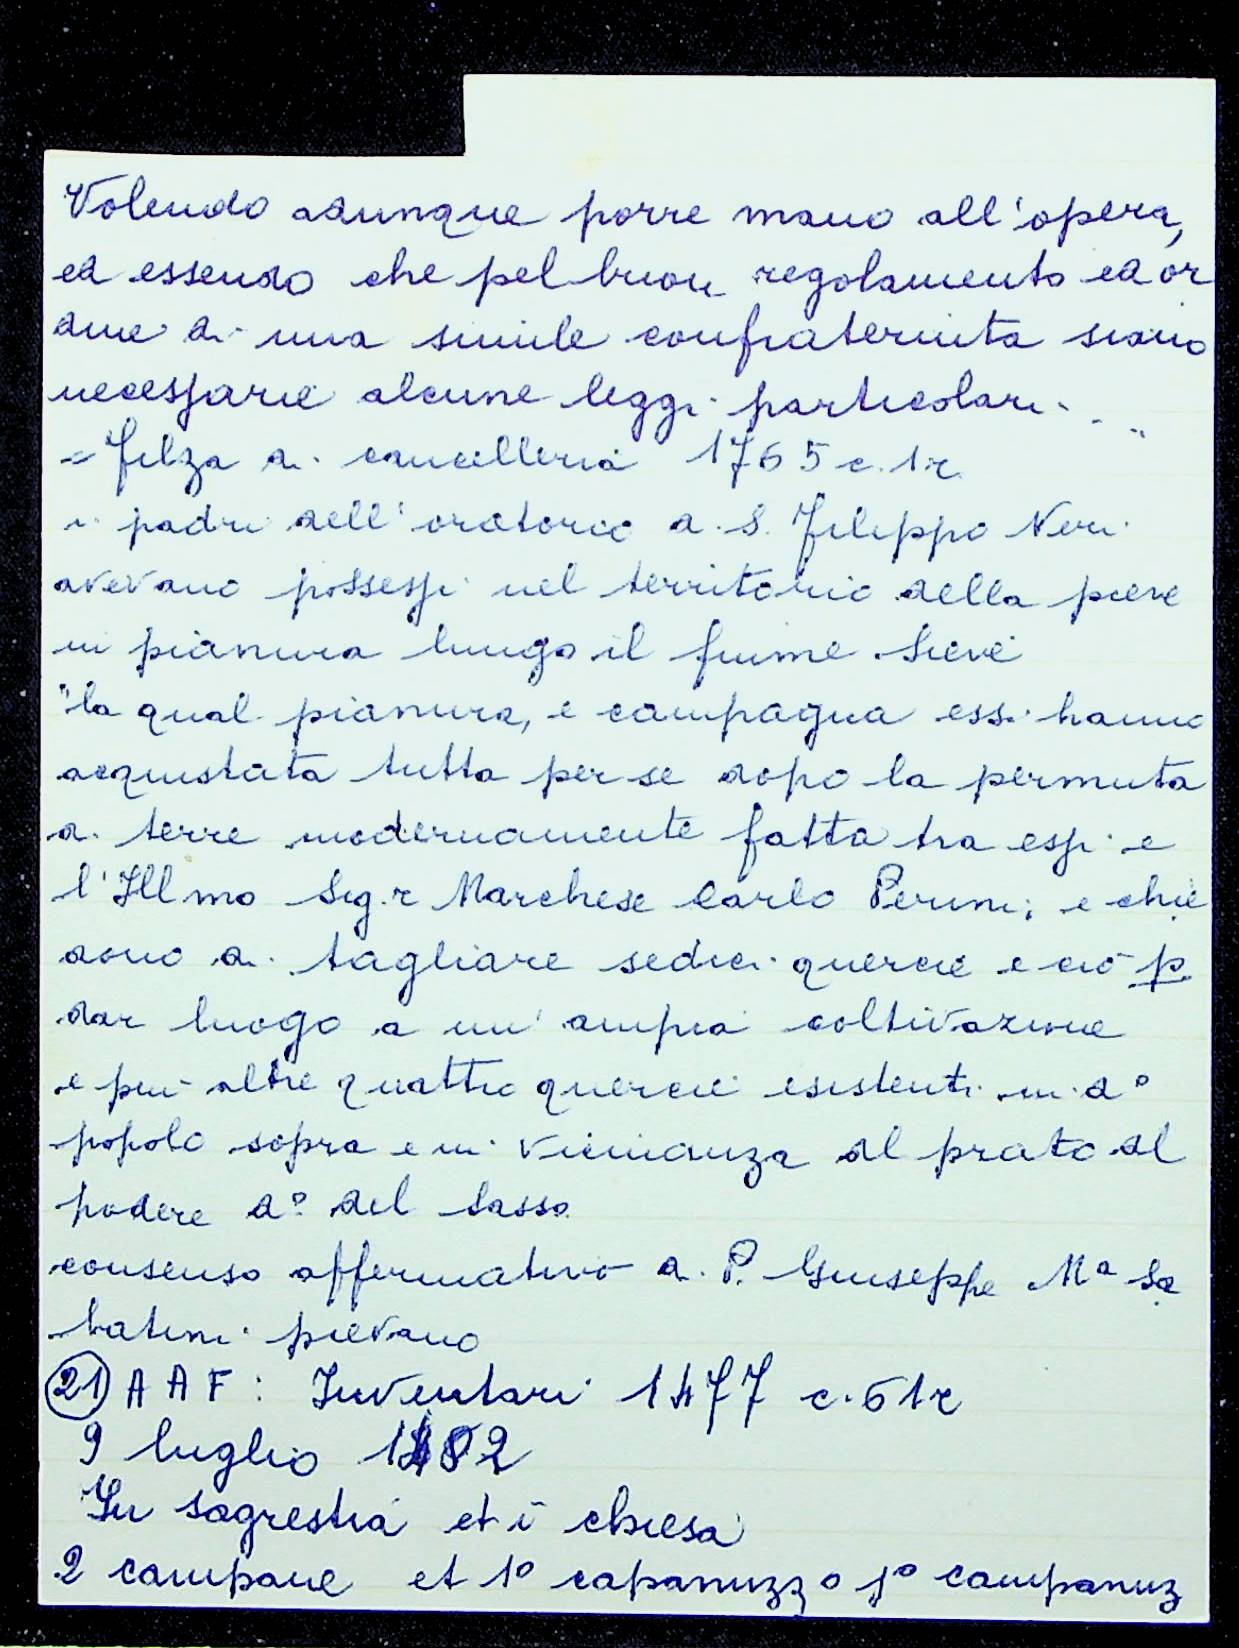 Volendo adunque porre mano all'opera,
ed essendo che pel buon regolamento ed or
dine di una simile confraternita siano
necessarie alcune leggi particolari..."
= filza di cancelleria 1765 c.1r
i padri dell'oratorio di S. Filippo Neri
avevano possessi nel territorio della pieve
in pianura lungo il fiume Sieve
"la qual pianura, e campagna essi hanno
acquistata tutta per se dopo la permuta
di terre modernamente fatta tra essi e
l'Illmo Sig.r Marchese Carlo Perini; e chie
dono di tagliare sedici quercie e ciò p
dar luogo a un' ampia coltivazione
e piu altre quattro quercie esistenti in d°
popolo sopra e in vicinanza al prato al
podere d° del Sasso
consenso affermativo di P. Giuseppe Mª Sa
batini pievano
(21) A A F : Inventari 1477 c.61r
9 luglio 1402
In sagrestia et ī chiesa
2 campane et 1° capanuzzo 1° campanuz